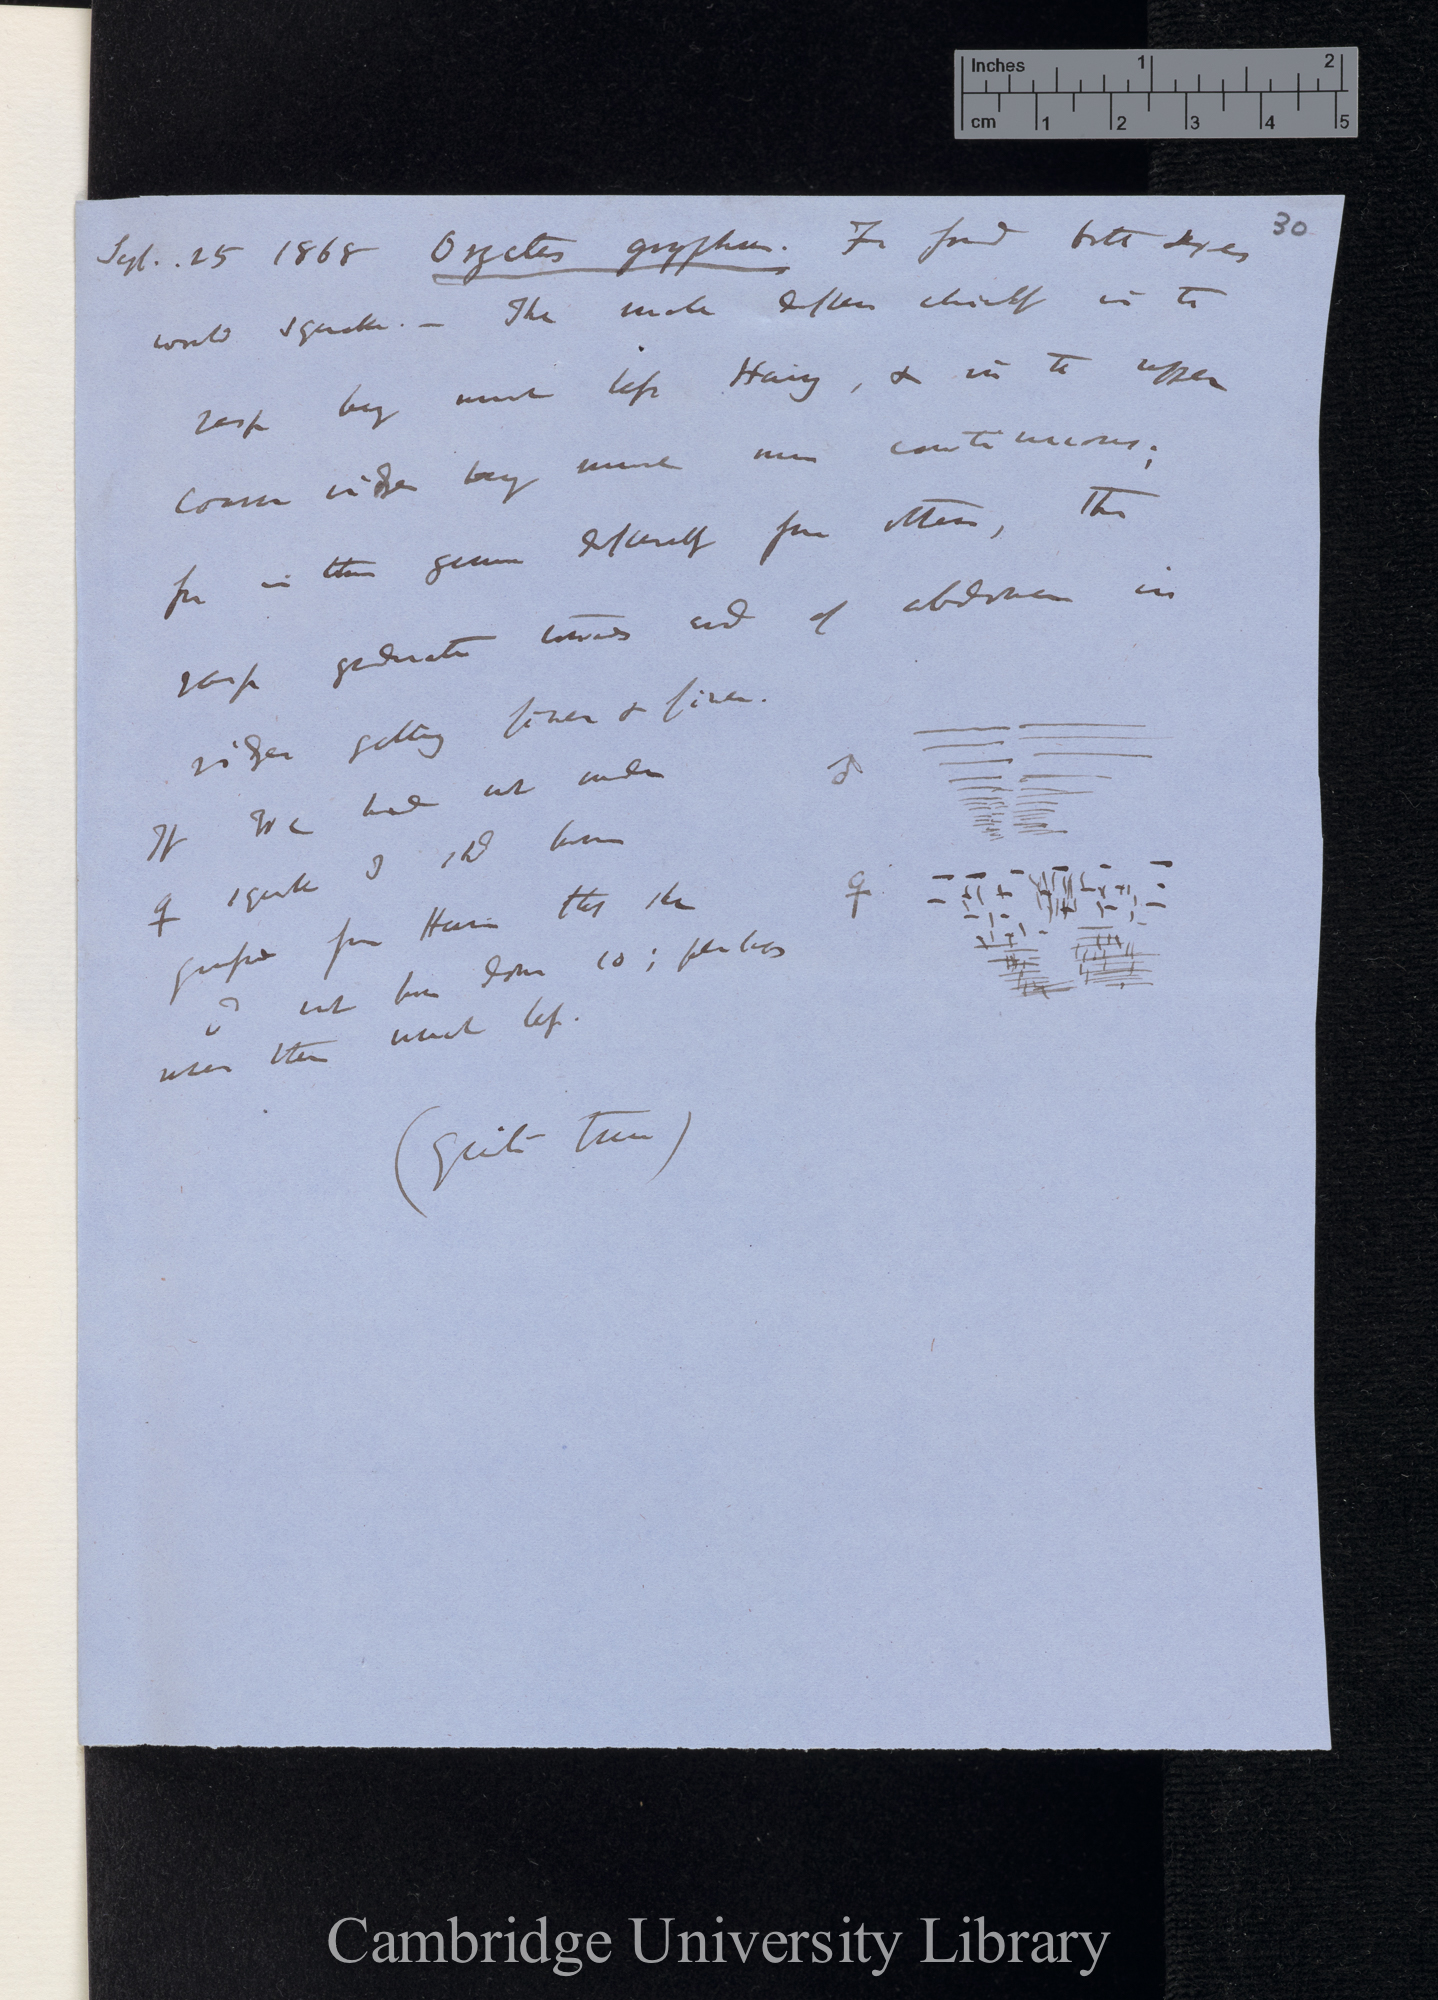 Inches 1 2
cm 1 2 3 4 5
30
Sept. 25 1868 Oryctes gryphus. Fr found both sexes
would squeak. — The male differs chiefly in the
rasp being much less Hairy, & in the upper
coarser ridges being much more continuous;
for in this genus differently from others, the
rasp graduates towards end of abdomen in
ridges getting finer & finer.
If we had not made ♂
♀ squeak I shd have ♀
guessed from Hairs that she
wd not have done so; perhaps
uses them much less.
(Quite true)
Cambridge University Library